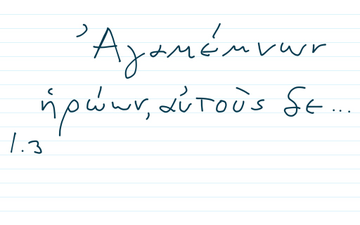 Ἀγαμέμνων
ἡρώων, αὐτοὺς δε...
1.3